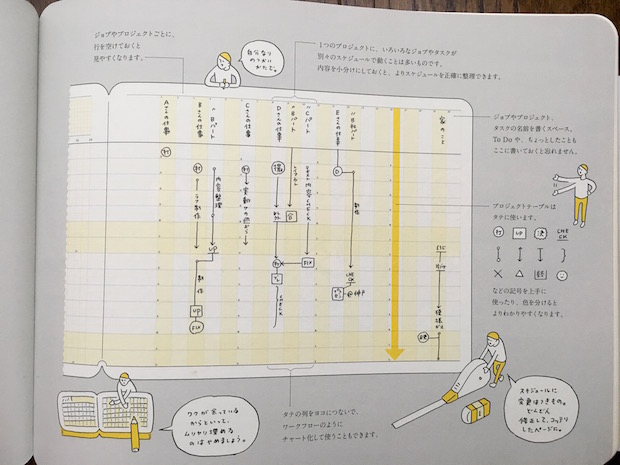 ジョブやプロジェクトごとに、
行を空けておくと
見やすくなります。
自分なり
のつかい
かたを。
1つのプロジェクトに、いろいろなジョブやタスクが
別々のスケジュールで動くことは多いものです。
内容を小分けにしておくと、よりスケジュールを正確に整理できます。
Aさんの仕事
Bさんの仕事
〃Bパート
Cさんの仕事
Dさんの仕事
〃Bパート
〃Cパート
Eさんの仕事
〃Bパート
家のこと
打
打
打
撮
D
内容整理
ラフ制作
制作
UP
UP
FIX
合
打
FIX
制作
CHECK
ジョブやプロジェクト、
タスクの名前を書くスペース。
To Do や、ちょっとしたことも
ここに書いておくと忘れません。
プロジェクトテーブルは
タテに使います。
打 UP 決 CHECK
などの記号を上手に
使ったり、色を分けると
よりわかりやすくなります。
ワクが余っている
からといって、
ムリヤリ埋める
のはやめましょう。
タテの列をヨコにつないで、
ワークフローのように
チャート化して使うこともできます。
スケジュールに
変更はつきもの。
どんどん
修正して、スッキリ
したページに。